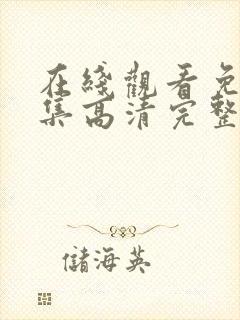 在綫觀看免
集高清完整
儲海英